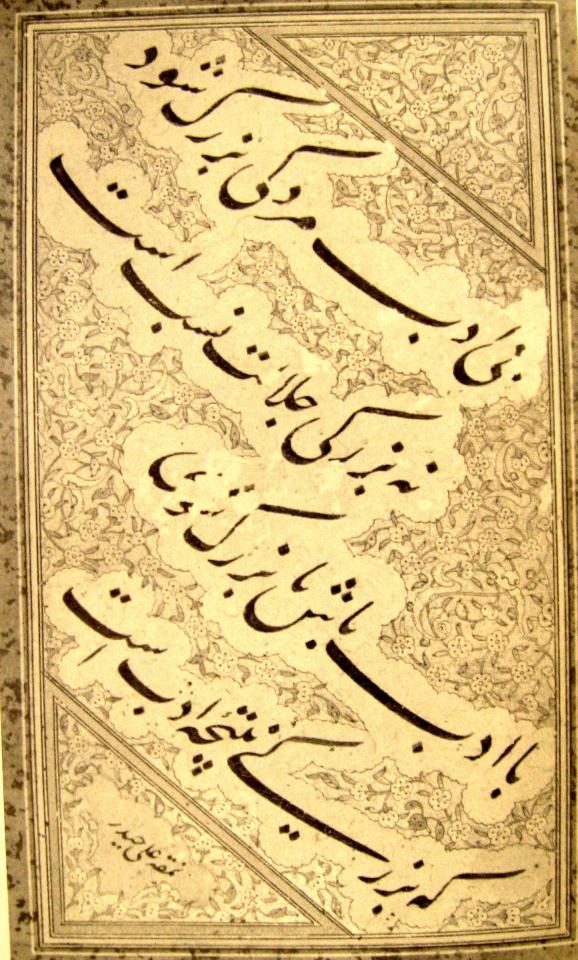 بی ادب مرد کی بزرگ شود
نه بزرگی جلالت نسب است
با ادب باش تا بزرگ شوی
که بزرگی نتیجه ادب است
نمقه علی حیدر